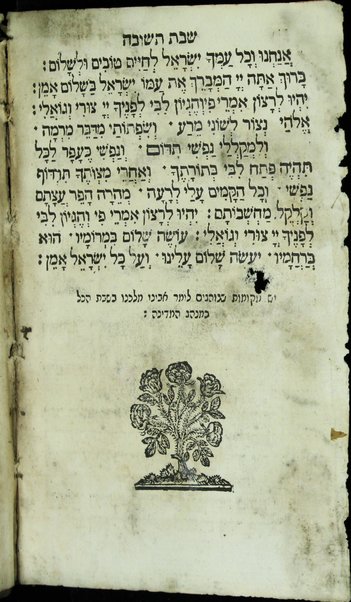 שבת תשובה
אֲנַחְנוּ וְכָל עַמְּךָ יִשְׂרָאֵל לְחַיִּים טוֹבִים וּלְשָׁלוֹם׃
בָּרוּךְ אַתָּה יְיָ הַמְבָרֵךְ אֶת עַמּוֹ יִשְׂרָאֵל בַּשָּׁלוֹם אָמֵן׃
יִהְיוּ לְרָצוֹן אִמְרֵי פִי וְהֶגְיוֹן לִבִּי לְפָנֶיךָ יְיָ צוּרִי וְגוֹאֲלִי׃
אֱלֹהַי נְצוֹר לְשׁוֹנִי מֵרָע ׳ וּשְׂפָתוֹתַי מִדַּבֵּר מִרְמָה ׳
וְלִמְקַלְלַי נַפְשִׁי תִדּוֹם ׳ וְנַפְשִׁי כֶּעָפָר לַכֹּל
תִּהְיֶה פְּתַח לִבִּי בְּתוֹרָתֶךָ ׳ וְאַחֲרֵי מִצְוֹתֶךָ תִּרְדּוֹף
נַפְשִׁי ׳ וְכָל הַקָּמִים עָלַי לְרָעָה ׳ מְהֵרָה הָפֵר עֲצָתָם
וְקַלְקֵל מַחְשְׁבוֹתָם ׃ יִהְיוּ לְרָצוֹן אִמְרֵי פִי וְהֶגְיוֹן לִבִּי
לְפָנֶיךָ יְיָ צוּרִי וְגוֹאֲלִי׃ עוֹשֶׂה שָׁלוֹם בִּמְרוֹמָיו ׳ הוּא
בְּרַחֲמָיו ׳ יַעֲשֶׂה שָׁלוֹם עָלֵינוּ ׳ וְעַל כָּל יִשְׂרָאֵל אָמֵן׃
יש מקומות שנוהגים לומר אבינו מלכנו בשבת הכל
כמנהג המדינה ׃